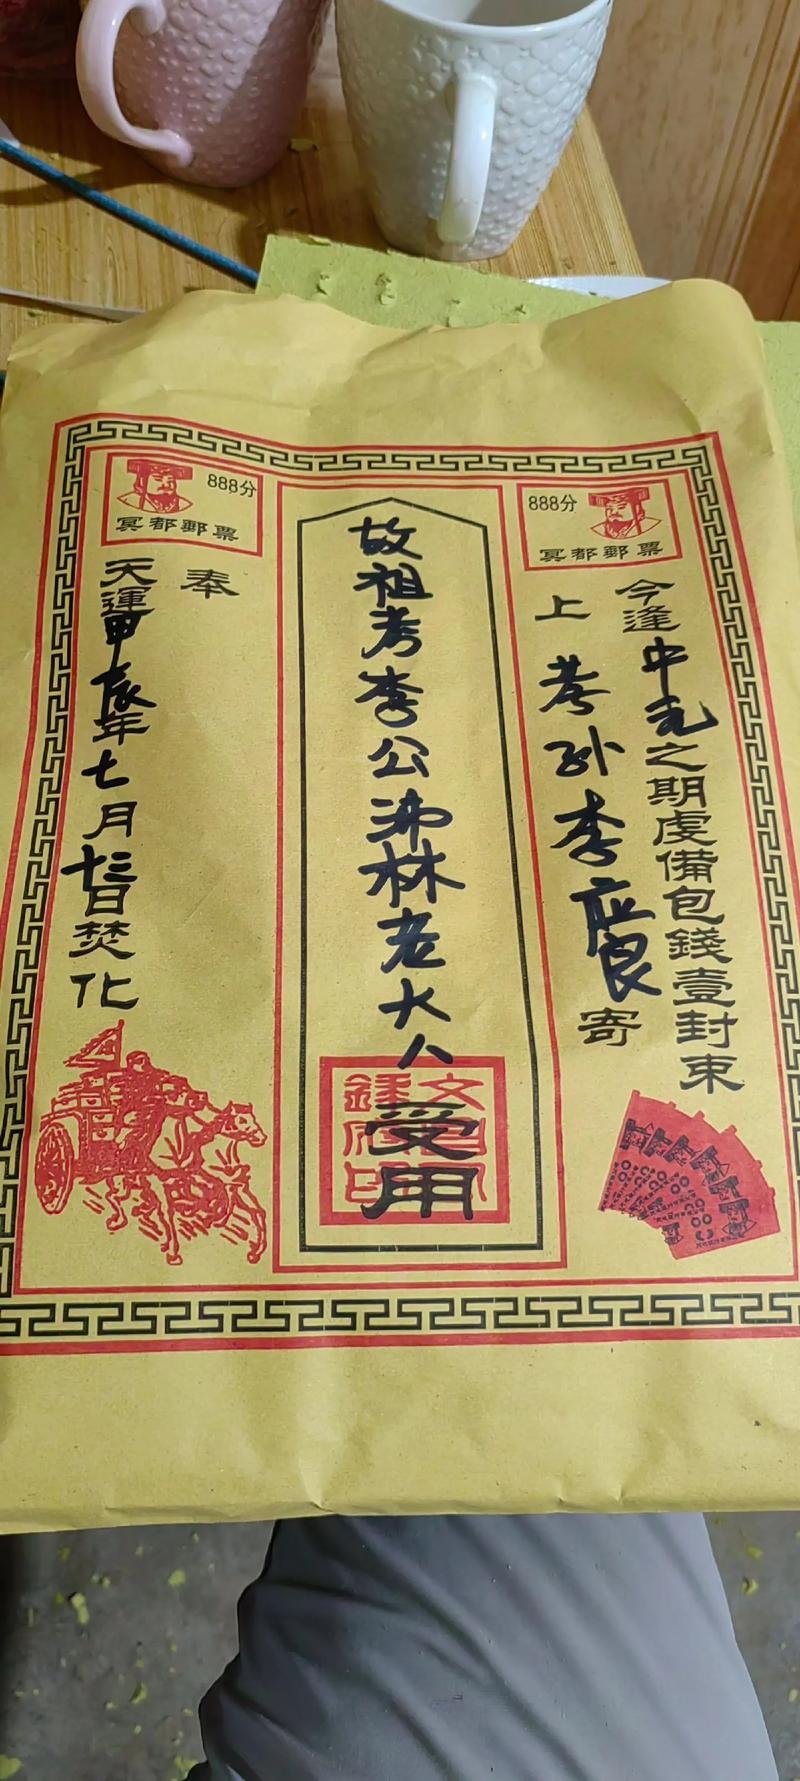 888分
冥都郵票
今逢中元之期虔備包錢壹封束
上 孝孙李应良寄
故祖考李公沛林老大人受用
888分
冥都郵票
奉
天運甲辰年七月十三日焚化